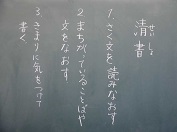 清書
せいしょ
1 さく文を読みなおす
2 まちがっていることばや
文をなおす
3 きまりに気をつけて
書く